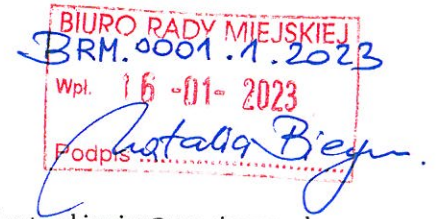 BIURO RADY MIEJSKIEJ
BRM.0001.1.2023
Wpł. 16 -01- 2023
Podpis Natalia